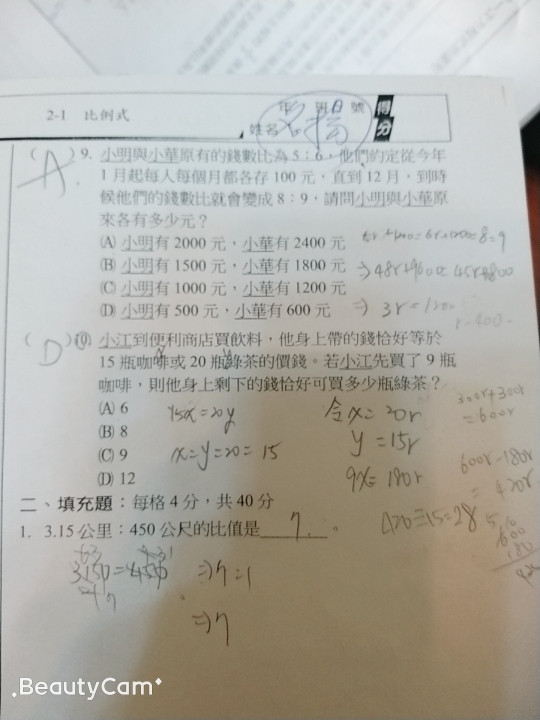 2-1 比例式
年 班 號
姓名
得分
A
( ) 9. 小明與小華原有的錢數比為 5:6,他們約定從今年
1 月起每人每個月都各存 100 元,直到 12 月,到時
候他們的錢數比就會變成 8:9,請問小明與小華原
來各有多少元?
(A) 小明有 2000 元,小華有 2400 元
(B) 小明有 1500 元,小華有 1800 元
(C) 小明有 1000 元,小華有 1200 元
(D) 小明有 500 元,小華有 600 元
⇒ 3r=120
r=400
D
( ) 10. 小江到便利商店買飲料,他身上帶的錢恰好等於
15 瓶咖啡或 20 瓶綠茶的價錢。若小江先買了 9 瓶
咖啡,則他身上剩下的錢恰好可買多少瓶綠茶?
(A) 6
(B) 8
(C) 9
(D) 12
15x=20y
x=y=20=15
令x=20r
y=15r
9x=180r
300r+300r
=600r
600r-180r
=420r
420÷15=28
600
180
二、填充題:每格 4 分,共 40 分
1. 3.15 公里:450 公尺的比值是 7 。
3150=450
⇒7=1
⇒7
.BeautyCam